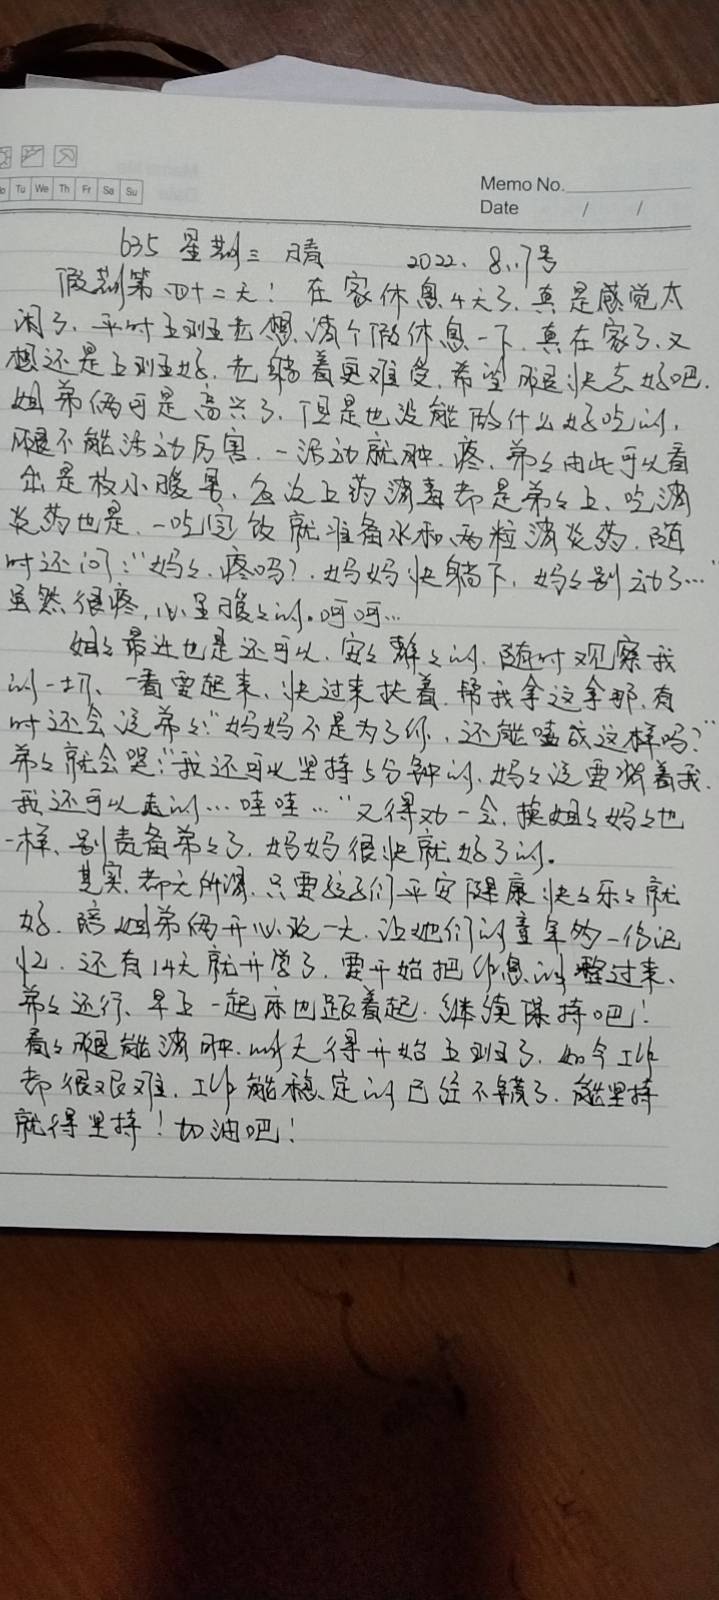 Tu We Th Fr Sa Su
Memo No.
Date / /
635 星期三 晴 2022、8、17号
假期第四十二天!在家休息4天了,真是感觉太
闲了,平时上班老想,请个假休息一下,真在家了,又
想还是上班好,老躺着更难受,希望腿快点好吧,
姐弟俩可是高兴了,但是也没能做什么好吃的,
腿不能活动厉害,一活动就肿、疼,弟々由此可以看
出是枚小暖男,每次上药消毒都是弟々上,吃消
炎药也是,一吃完饭就准备水和两粒消炎药,随
时还问:"妈々,疼吗?,妈妈快躺下,妈々别动了…"
虽然很疼,心里暖々的。呵呵…
姐々最近也是还可以,安々静々的,随时观察我
的一切,一看要起来,快过来扶着,帮我拿这拿那,有
时还会说弟々:"妈妈不是为了你,还能磕成这样吗?"
弟々就会哭:"我还可以坚持5分钟的,妈々说要嘞着我,
我还可以走的…哇哇…"又得劝一会,换姐々妈々也
一样,别责备弟々了,妈妈很快就好了的。
其实,都无所谓,只要孩子们平安健康快々乐々就
好,陪姐弟俩开心玩一天,让她们的童年多一份记
忆,还有14天就开学了,要开始把作息的整过来,
弟々还行,早上一起床也跟着起,继续保持吧!
看々腿能消肿,明天得开始上班了,如今工作
都很艰难,工作能稳定的已经不错了,能坚持
就得坚持!加油吧!